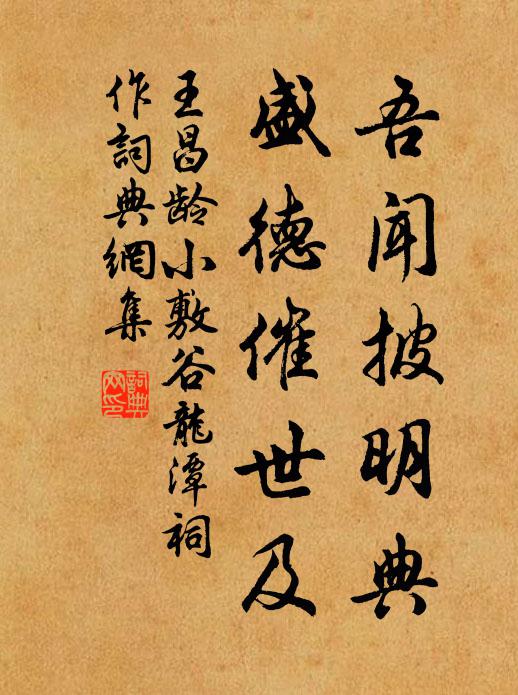 吾闻披明典
盛德催世及
王昌龄小敷谷龍潭祠
作詞典網集
詞典網印